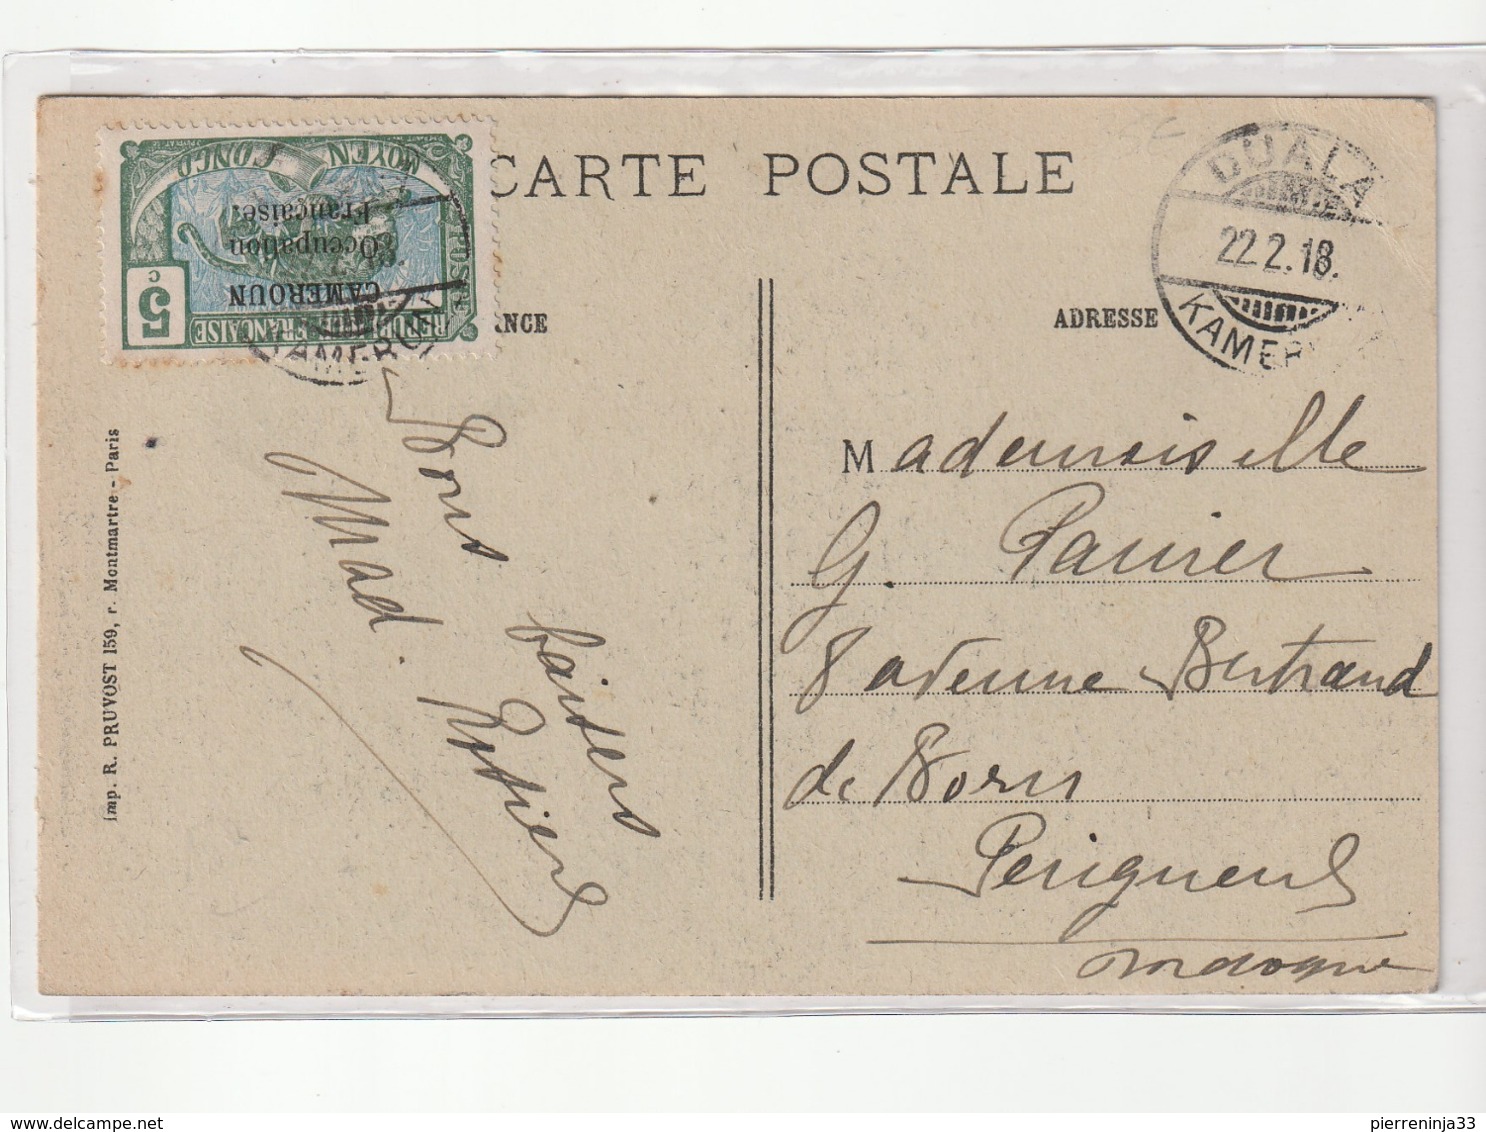 CARTE POSTALE
MOYEN CONGO
POSTES
CAMEROUN
Occupation
Française.
5
c
RÉPUBLIQUE FRANÇAISE
DUALA
22.2.18.
KAMER
KAMERUN
ANCE
ADRESSE
Bons baisers
Mad.
Mademoiselle
G. Panier
8 avenue Bertrand
de Born
Perigueux
Dordogne
Imp. R. PRUVOST 159, r. Montmartre - Paris
pierreninja33